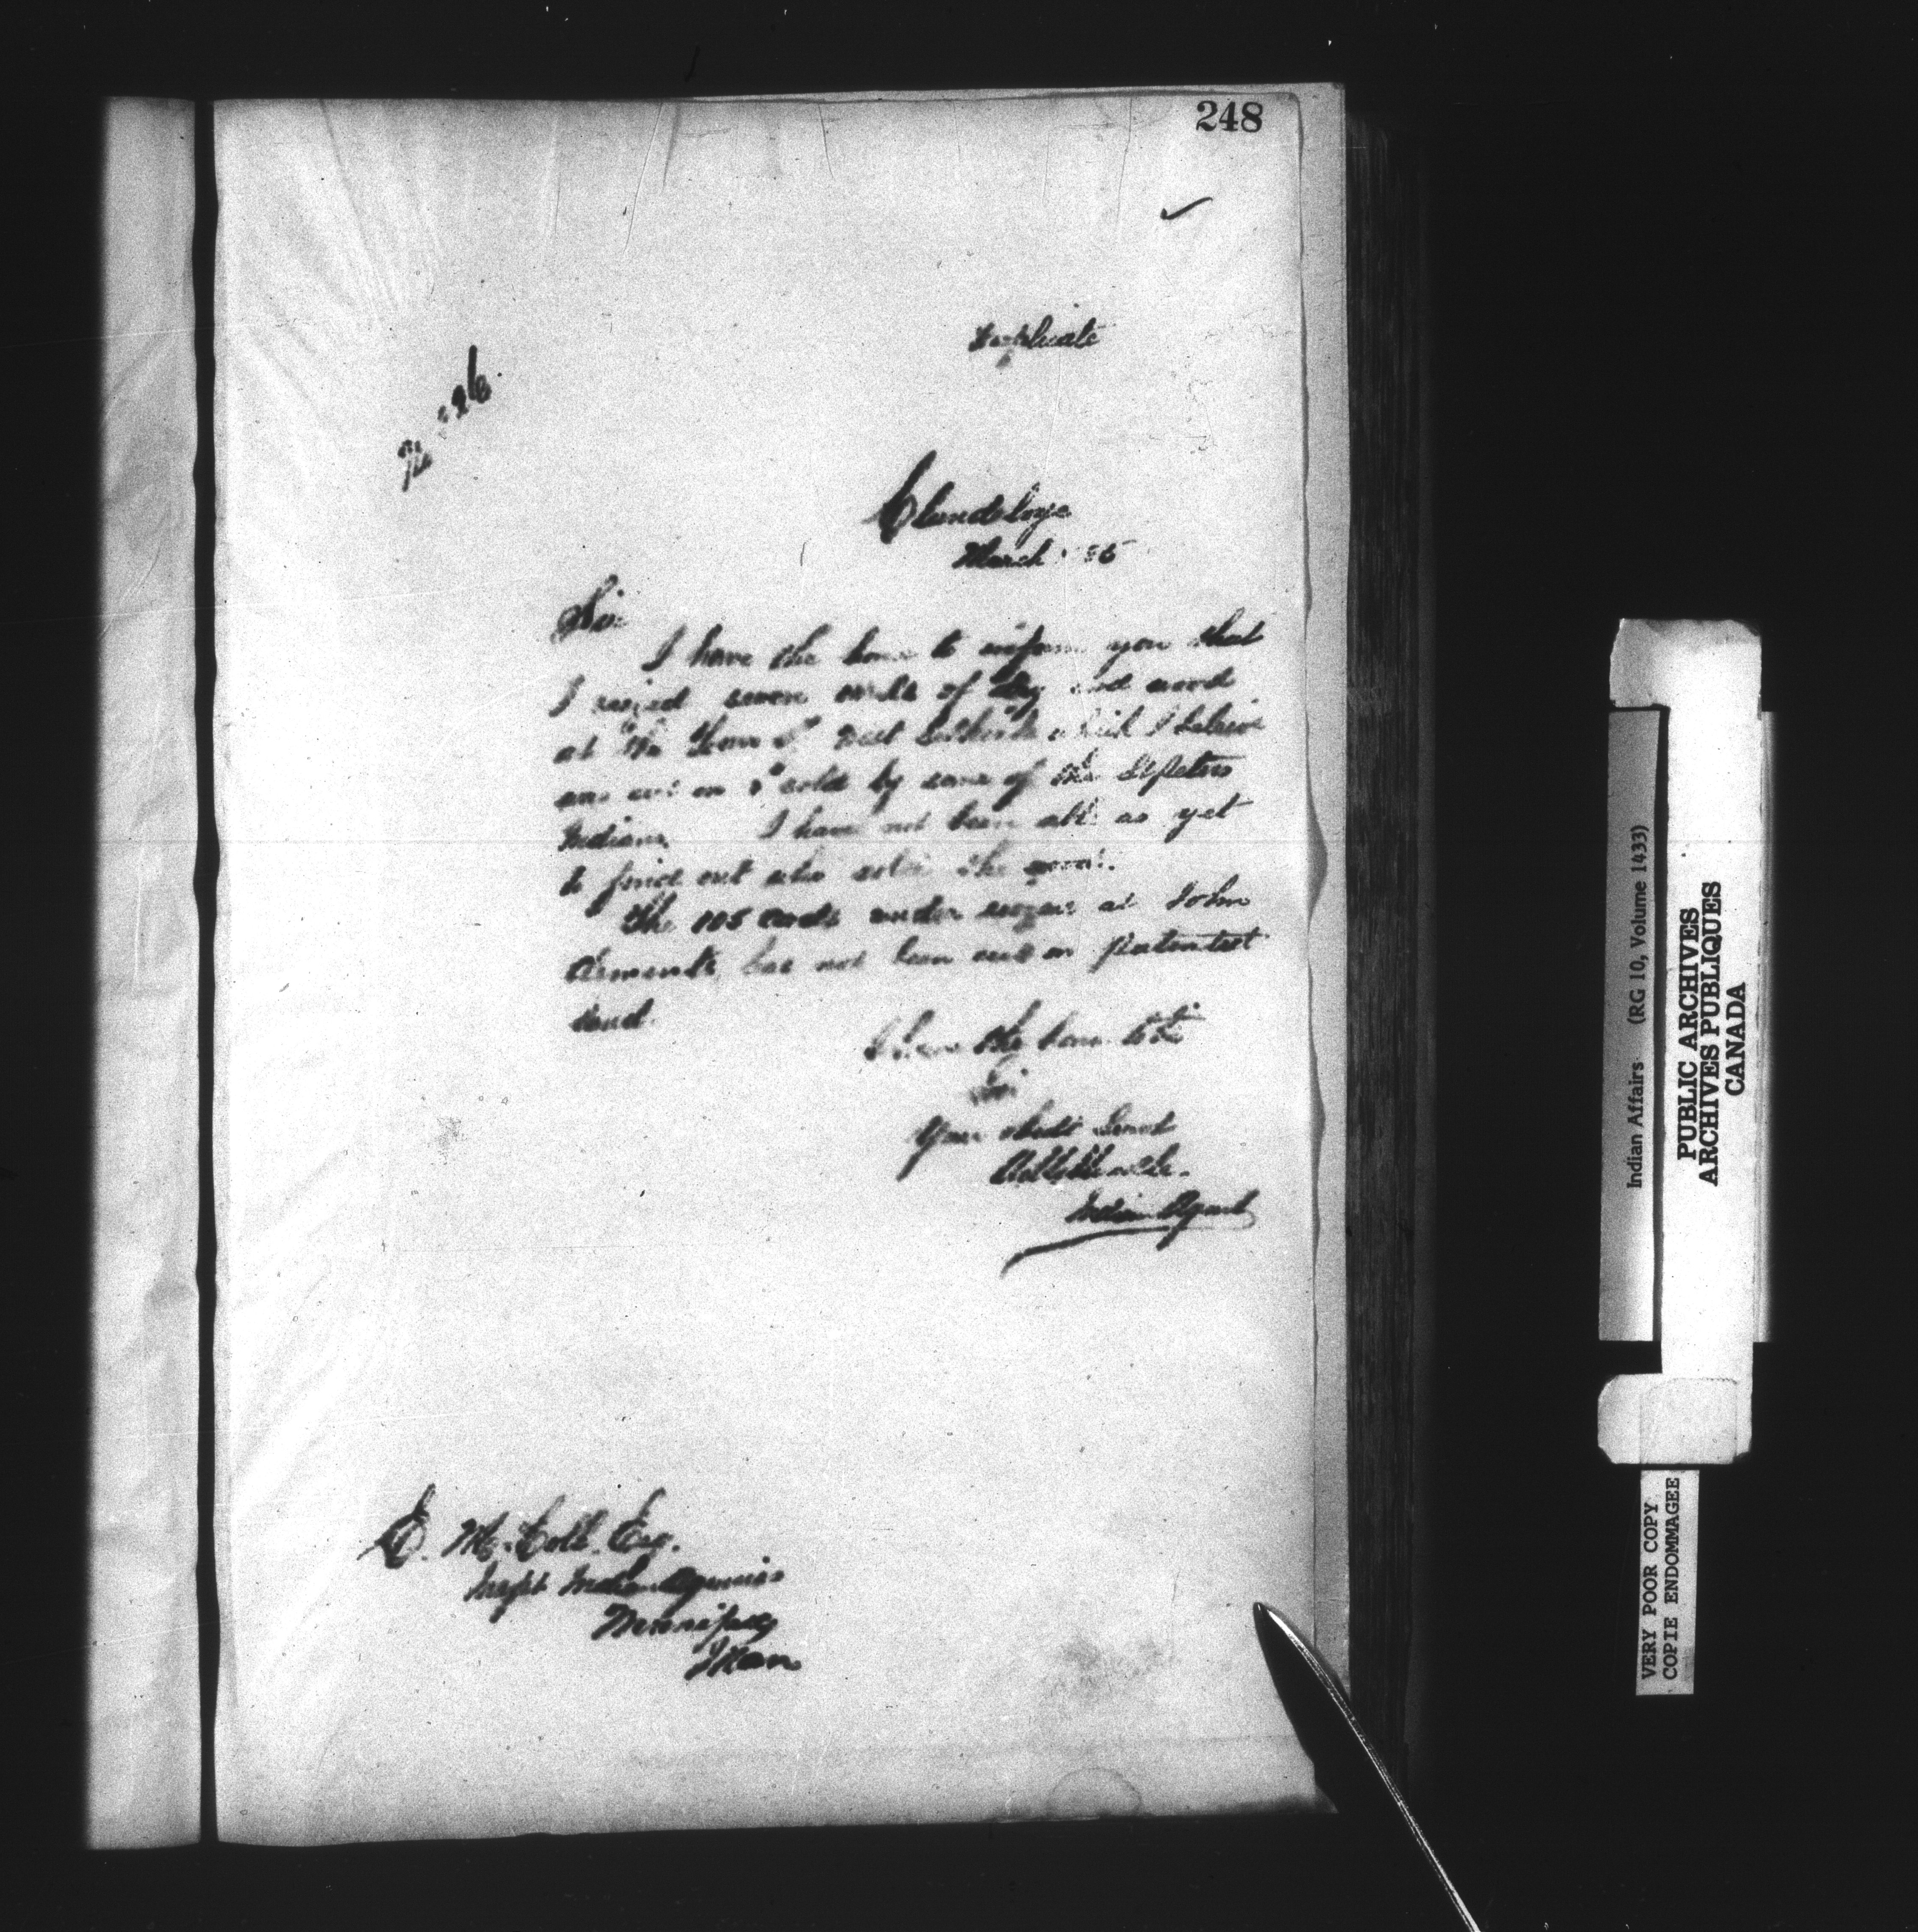 248
Clandeboye
March
Sir
I have the honor to inform you that
I seized seven cords of dry wood
at Wm West Selkirk which I believe
was cut on & sold by some of the St Peters
Indians I have not been able as yet
to find out who sold the wood.
The 105 cords under seizure at John
Clements has not been cut on patented
land.
I have the honor to be
Sir
Your obdt Servt
Indian Agent
E. McColl. Esq.
Inspt Indian Agencies
Winnipeg
Man
Indian Affairs (RG 10, Volume 1433)
PUBLIC ARCHIVES
ARCHIVES PUBLIQUES
CANADA
VERY POOR COPY
COPIE ENDOMMAGEE